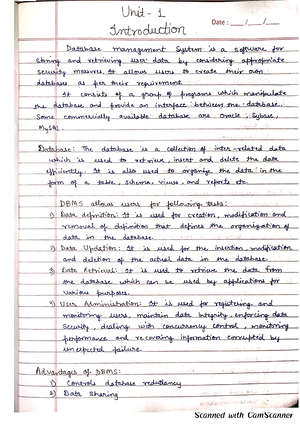 Unit - 1
Date : __/__/__
Introduction
Database management System is a software for
storing and retrieving user data by considering appropriate
security measures. It allows users to create their own
databases as per their requirement.
It consists of a group of programs which manipulate
the database and provide an interface between the database.
Some commercially available database are oracle, Sybase,
MySQL
Database: The database is a collection of inter-related data
which is used to retrieve, insert and delete the data
efficiently. It is also used to organize the data in the
form of a table, schema, views, and reports etc
DBMS allows users for following tasks:
1) Data definition: It is used for creation, modification and
removal of definition that defines the organization of
data in the database.
2) Data Updation: It is used for the insertion, modification
and deletion of the actual data in the database.
3) Data Retrieval: It is used to retrieve the data from
the database which can be used by applications for
various purposes.
4) User Administration: It is used for registering and
monitoring users, maintain data integrity, enforcing data
security, dealing with concurrency control, monitoring
performance and recovering information corrupted by
unexpected failure.
Advantages of DBMS:
1) Controls database redundancy
2) Data Sharing
Scanned with CamScanner